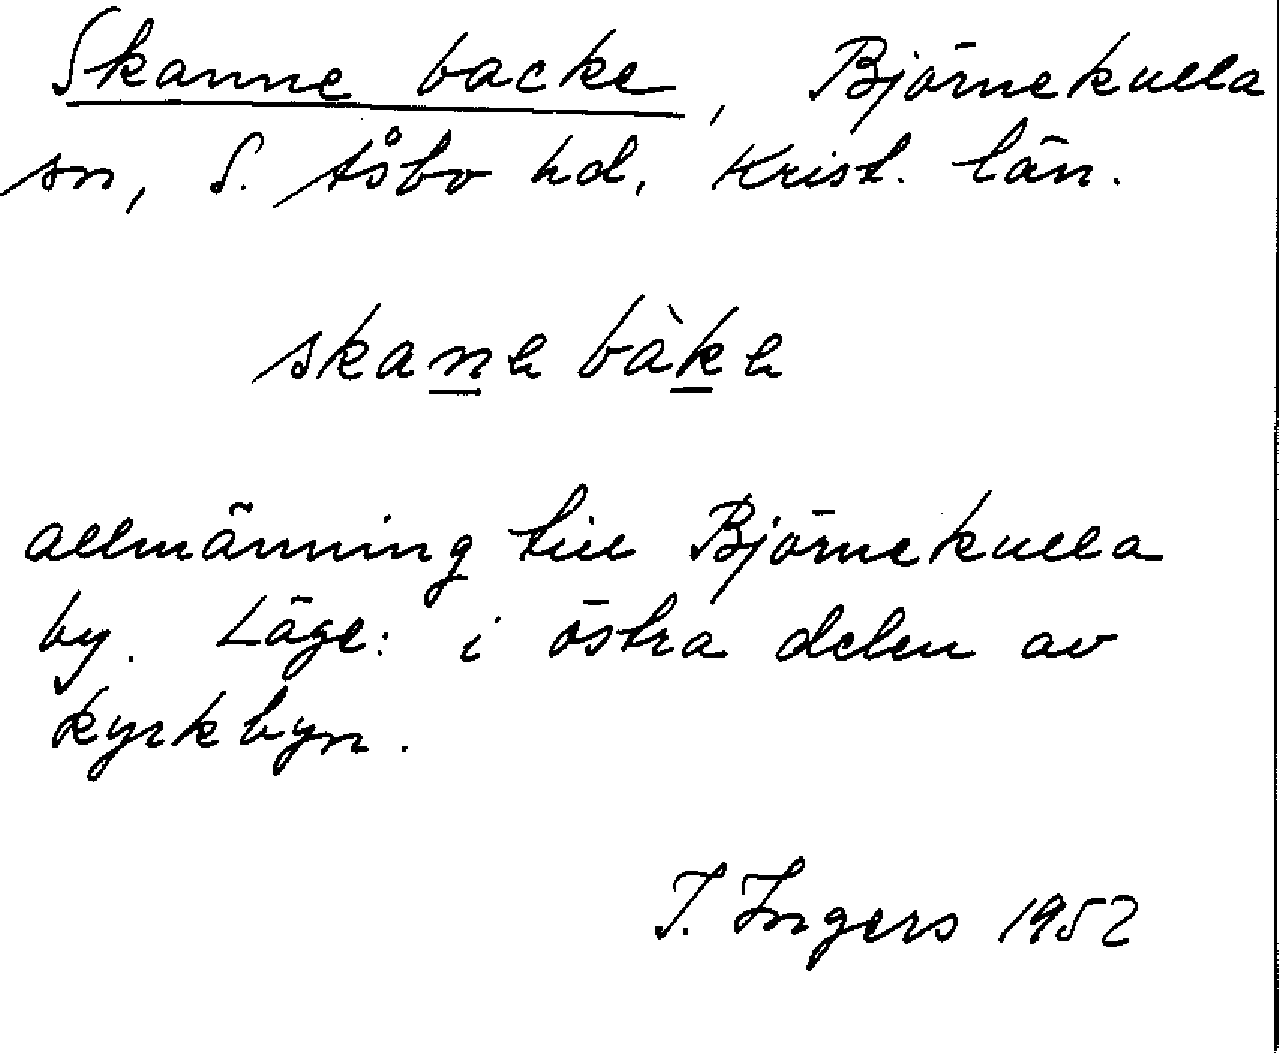 Skanne backe, Björnekulla
sn, S. Åsbo hd, Krist. län.
skane bàke
allmänning till Björnekulla
by. Läge: i östra delen av
kyrkbyn.
I. Ingers 1952